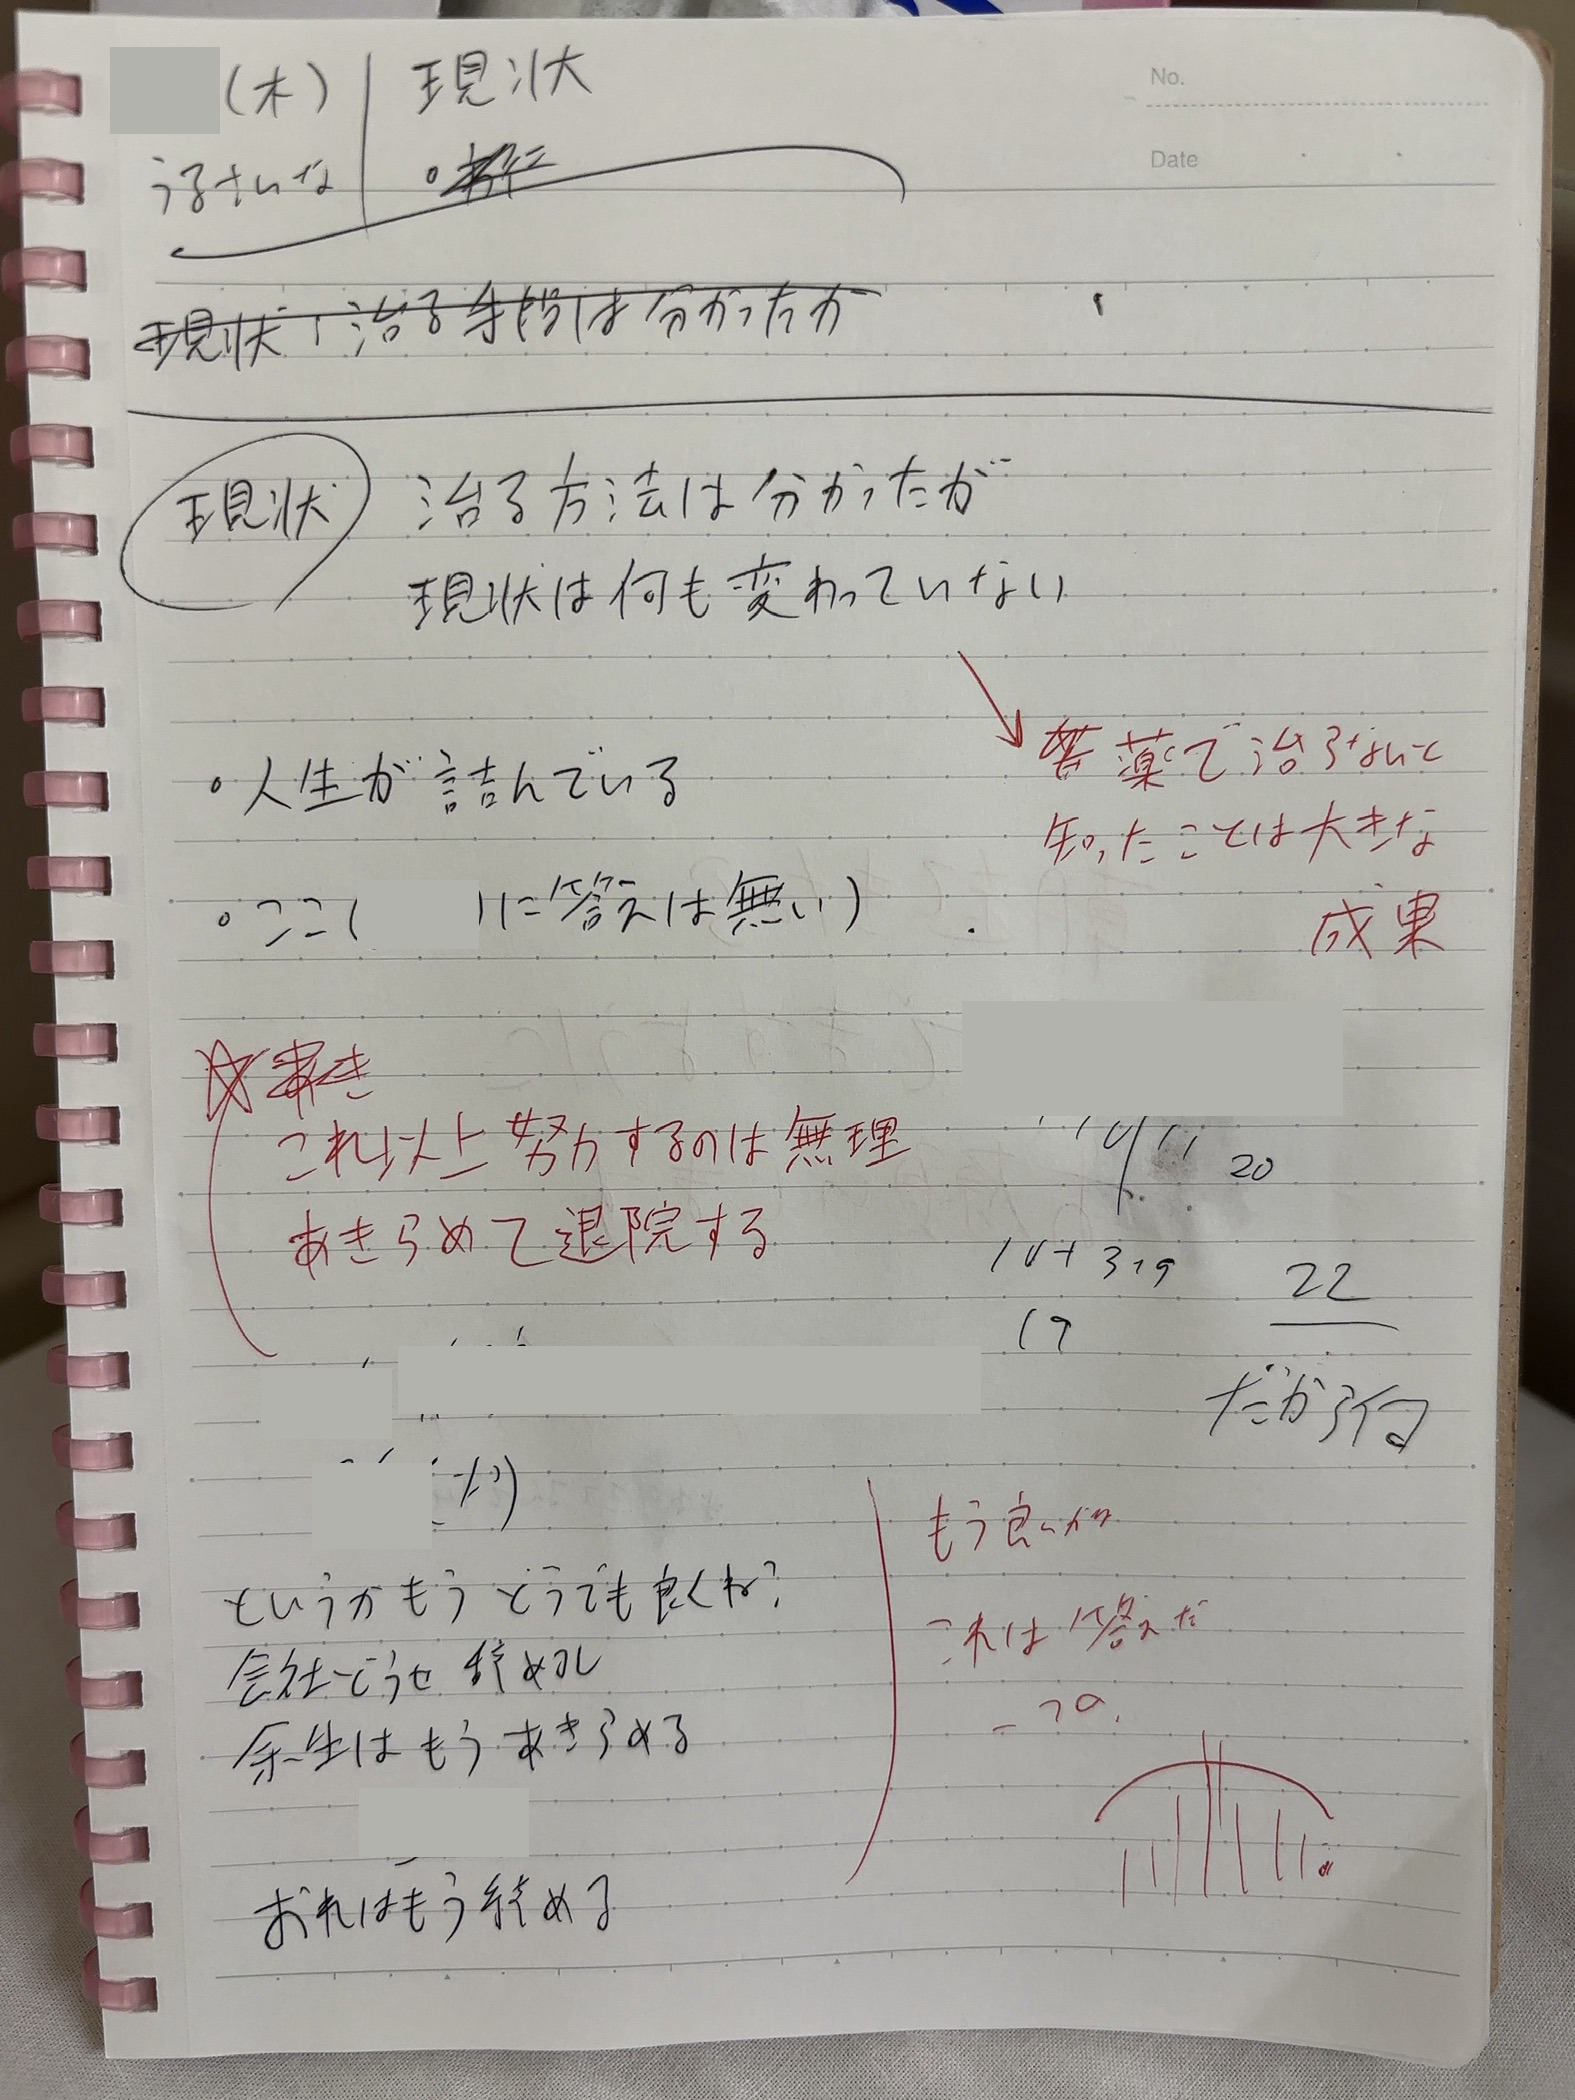 (木) 現状
うるさいな
No.
Date
現状 治る手段は分かったが
現状 治る方法は分かったが
現状は何も変わっていない
薬で治らないと
知ったことは大きな
成果
・人生が詰んでいる
・ここ( )に答えは無い)
これ以上努力するのは無理
あきらめて退院する
20
22
19
だから何
というかもうどうでも良くね?
会社どうせ辞めるし
余生はもうあきらめる
おれはもう辞める
もう良いが
これは答えだ